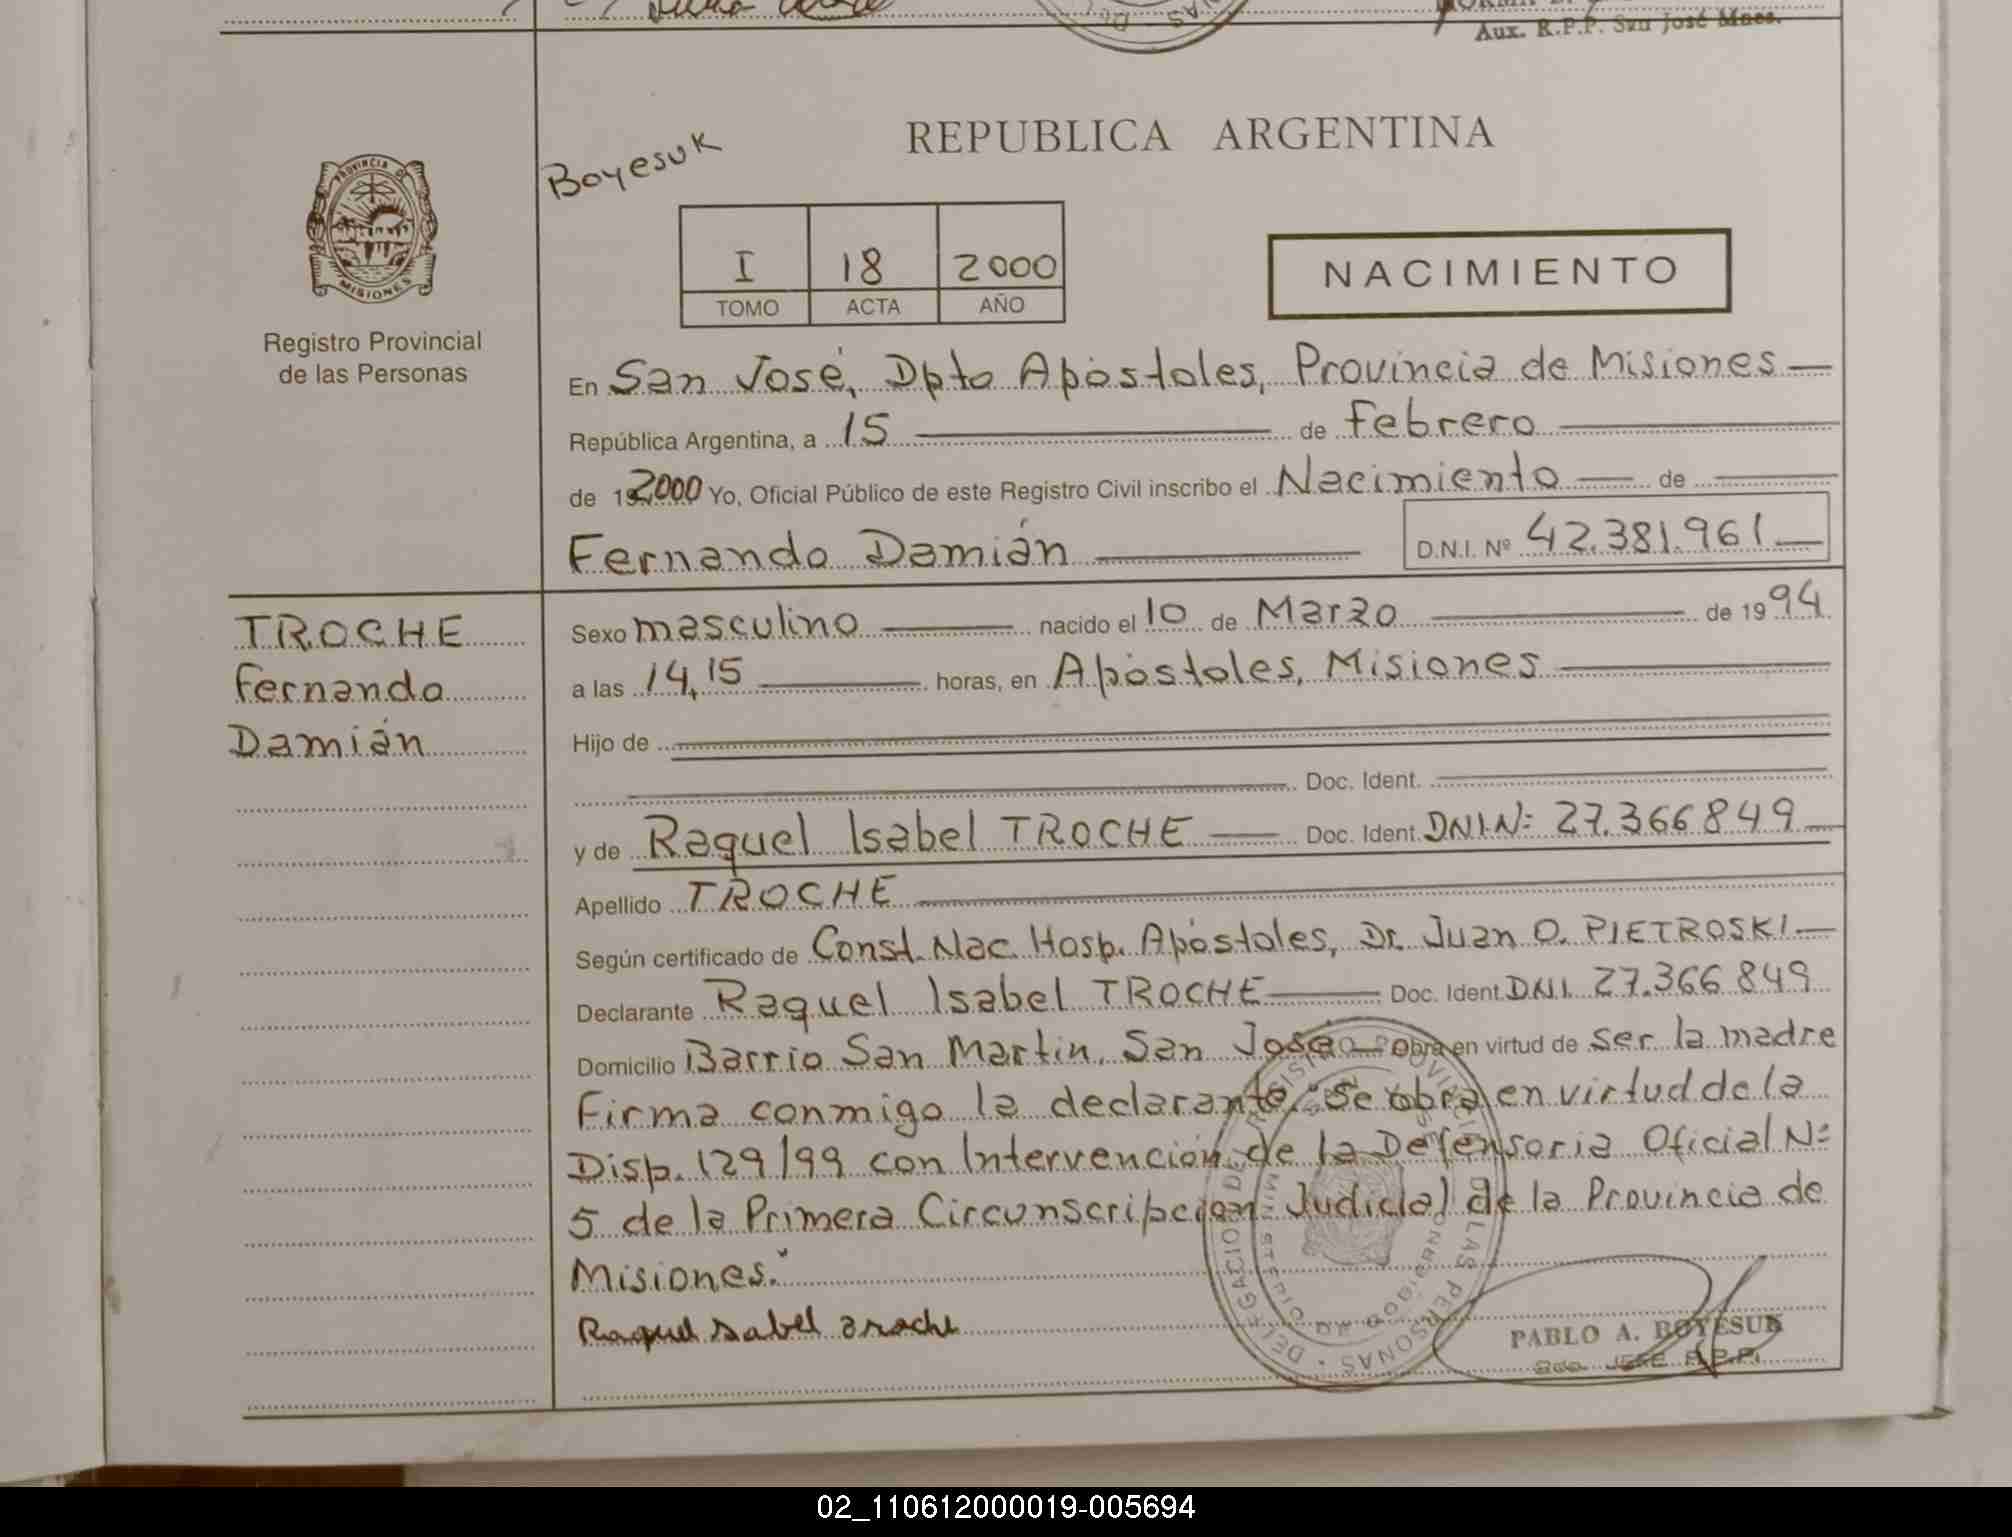 Aux. R.P.P. San José Mnes.
REPUBLICA ARGENTINA
Boyesuk
PROVINCIA DE
MISIONES
Registro Provincial
de las Personas
I 18 2000
TOMO ACTA AÑO
NACIMIENTO
En San José, Dpto Apóstoles, Provincia de Misiones
República Argentina, a 15 de febrero
de 19 2000 Yo, Oficial Público de este Registro Civil inscribo el Nacimiento de
Fernando Damián D.N.I. Nº 42.381.961
TROCHE
Fernando
Damián
Sexo masculino nacido el 10 de Marzo de 1994
a las 14,15 horas, en Apóstoles, Misiones
Hijo de
Doc. Ident.
y de Raquel Isabel TROCHE Doc. Ident. DNI.Nº 27.366849
Apellido TROCHE
Según certificado de Const. Nac. Hosp. Apóstoles, Dr. Juan O. PIETROSKI
Declarante Raquel Isabel TROCHE Doc. Ident. D.N.I. 27.366849
Domicilio Barrio San Martin, San José obra en virtud de ser la madre
Firma conmigo la declarante. "Se obra en virtud de la
Disp. 129/99 con Intervención de la Defensoria Oficial Nº
5 de la Primera Circunscripcion Judicial de la Provincia de
Misiones."
Raquel Isabel Troche
PABLO A. BOYESUK
02_110612000019-005694